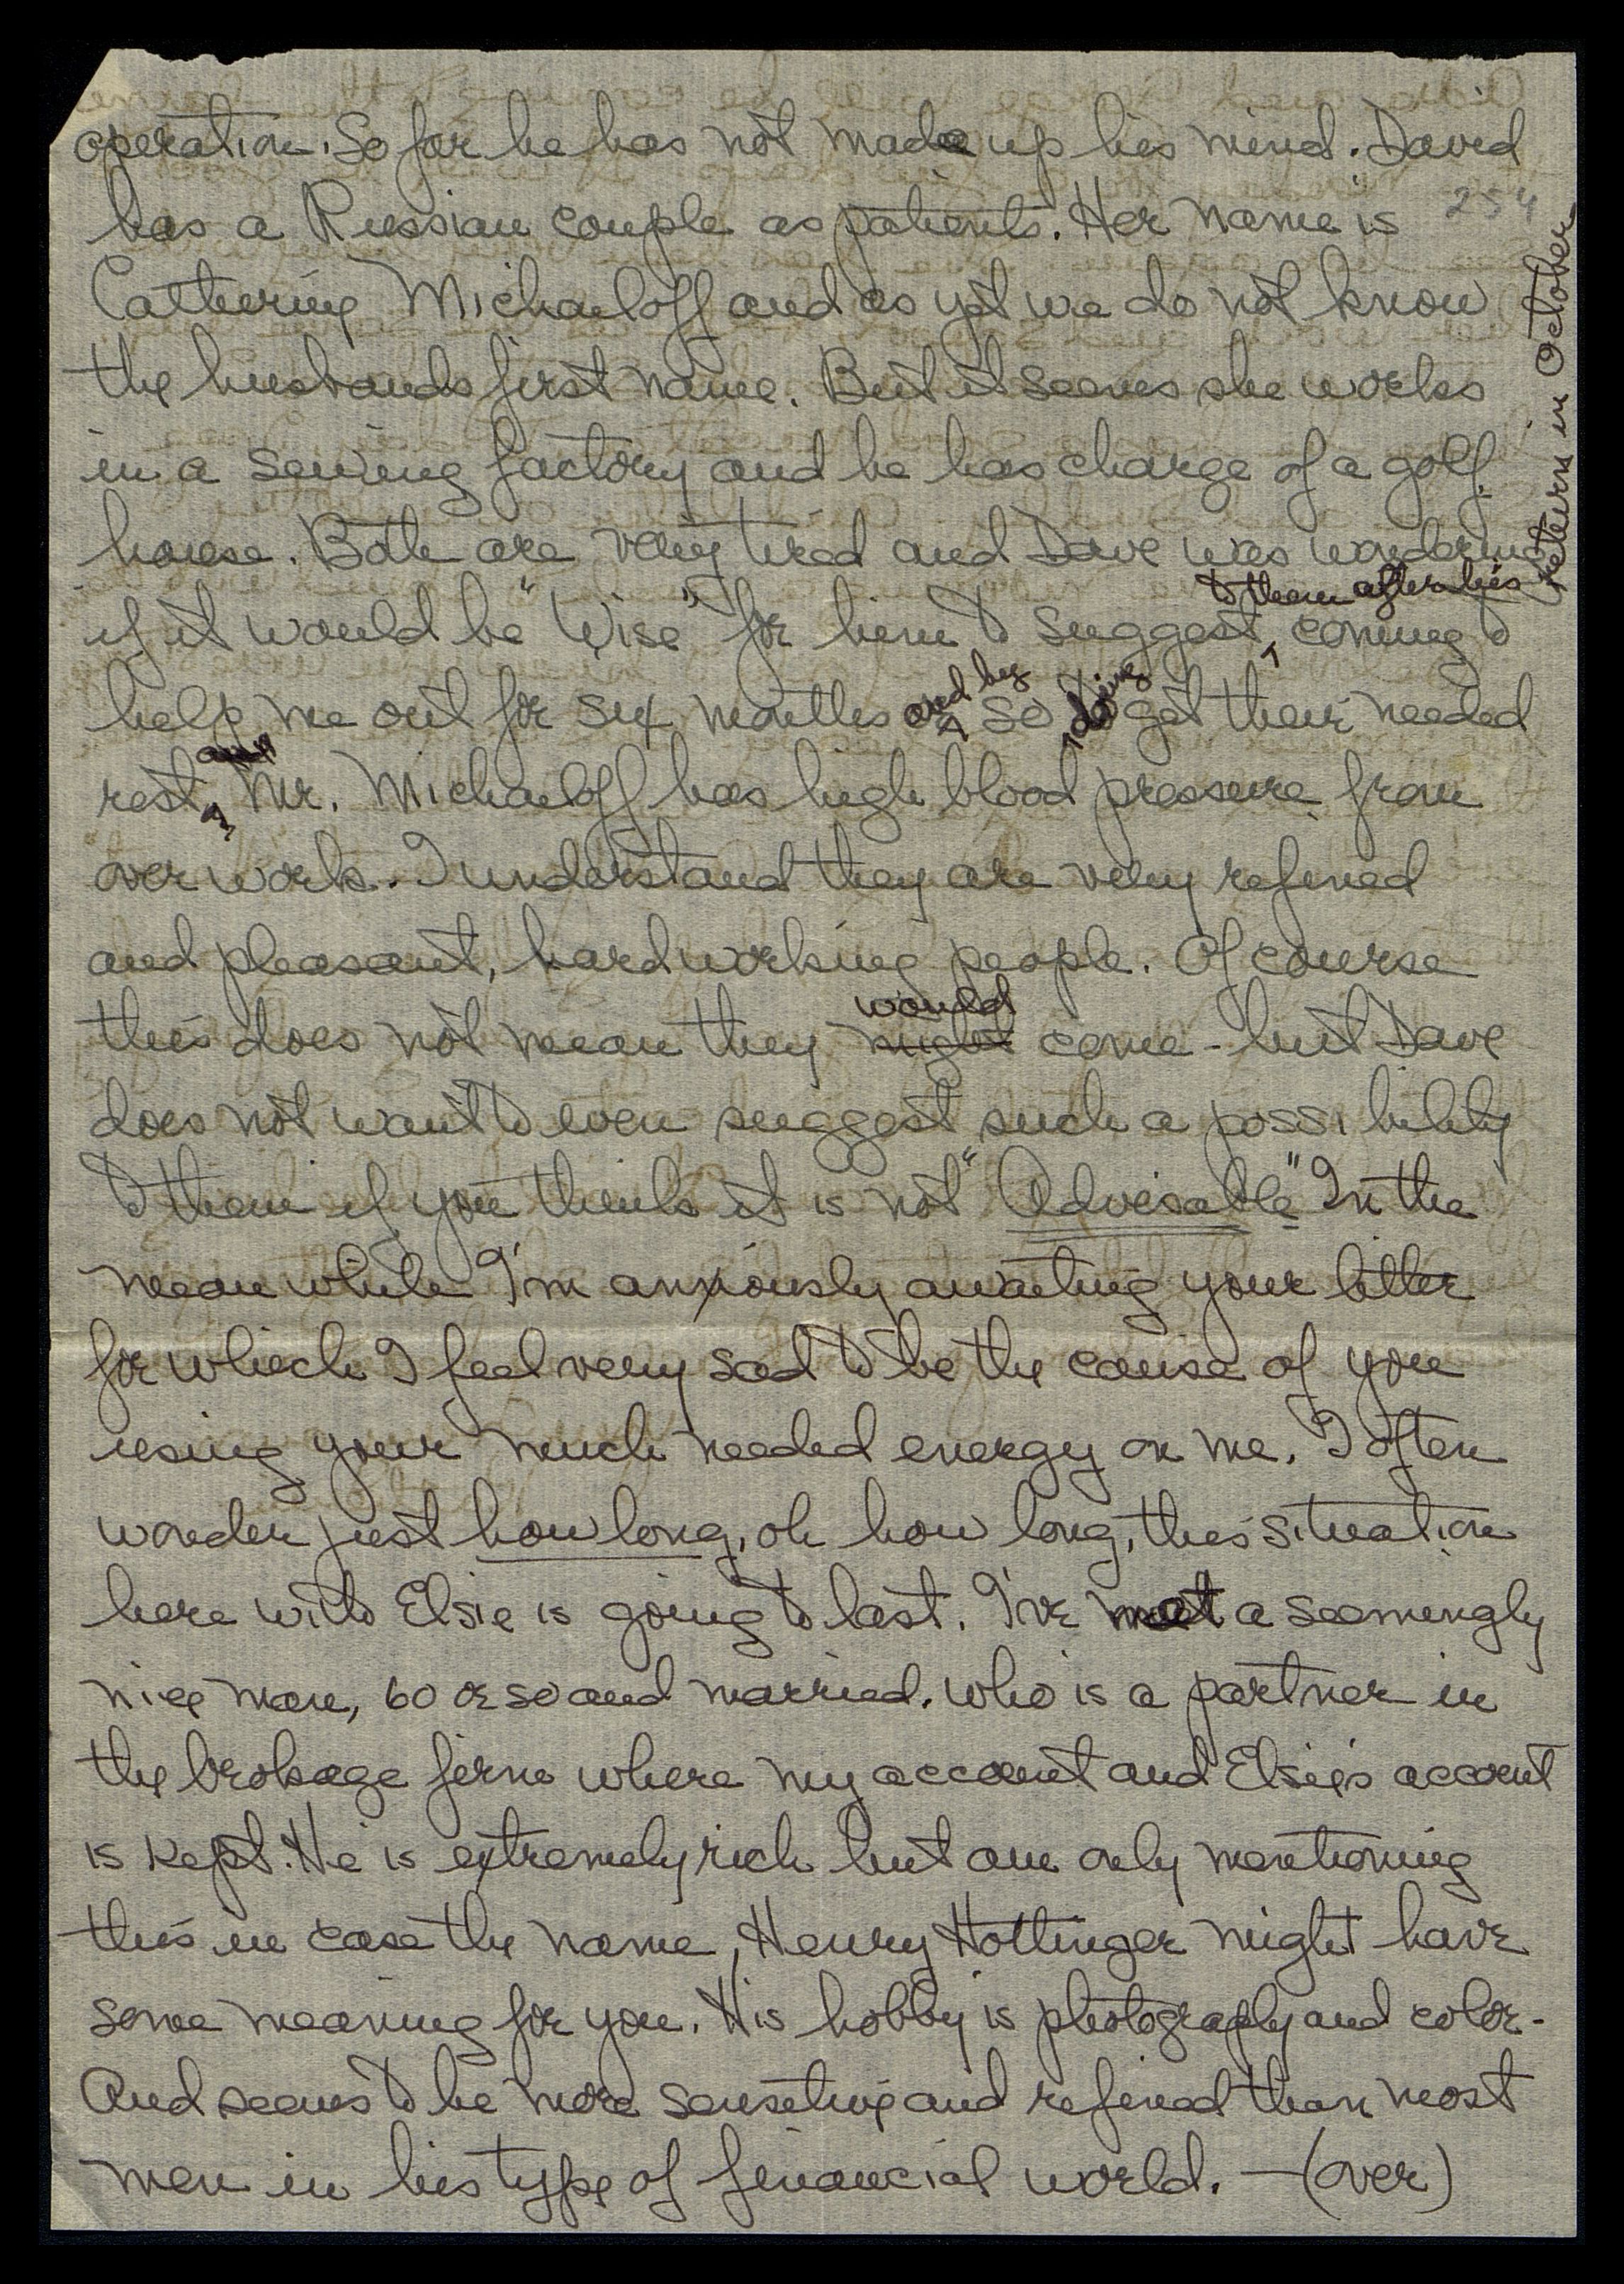 operation. So far he has not made up his mind. David
has a Russian couple as patients. Her name is 254
Catherine Michaeloff and as yet we do not know
the husbands first name. But it seems she works
in a sewing factory and he has charge of a golf
house. Both are very tired and Dave was wondering
to them after his return in October
if it would be "Wise" for him to suggest, coming to
help me out for six months and by so doing get their needed
rest, Mr. Michaeloff has high blood pressure from
over work. I understand they are very refined
and pleasant, hard working people. Of course
would
this does not mean they might come - but Dave
does not want to even suggest such a possibility
to them if you think it is not "Advisable" In the
mean while I'm anxiously awaiting your letter
for which I feel very sad to be the cause of you
using your much needed energy on me. I often
wonder just how long, oh how long, this situation
here with Elsie is going to last. I've met a seemingly
nice man, 60 or so and married. Who is a partner in
the brokage firm where my account and Elsie's account
is kept. He is extremely rich but am only mentioning
this in case the name, Henry Hottinger might have
some meaning for you. His hobby is photography and color-
And seems to be more sensetive and refined than most
men in his type of financial world. — (over)